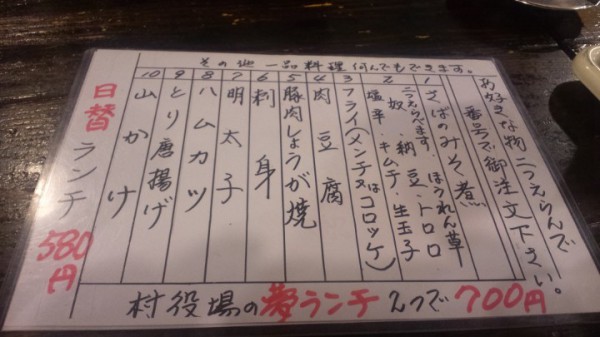 その他一品料理何んでもできます。
お好きな物二つえらんで
番号で御注文下さい。
1 さばのみそ煮
2 二つえらべます、ほうれん草
奴、納豆、トロロ
塩辛、キムチ、生玉子
3 フライ(メンチ又はコロッケ)
4 肉豆腐
5 豚肉しょうが焼
6 刺身
7 明太子
8 ハムカツ
9 とり唐揚げ
10 山かけ
日替ランチ 580円
村役場の夢ランチ 2つで700円